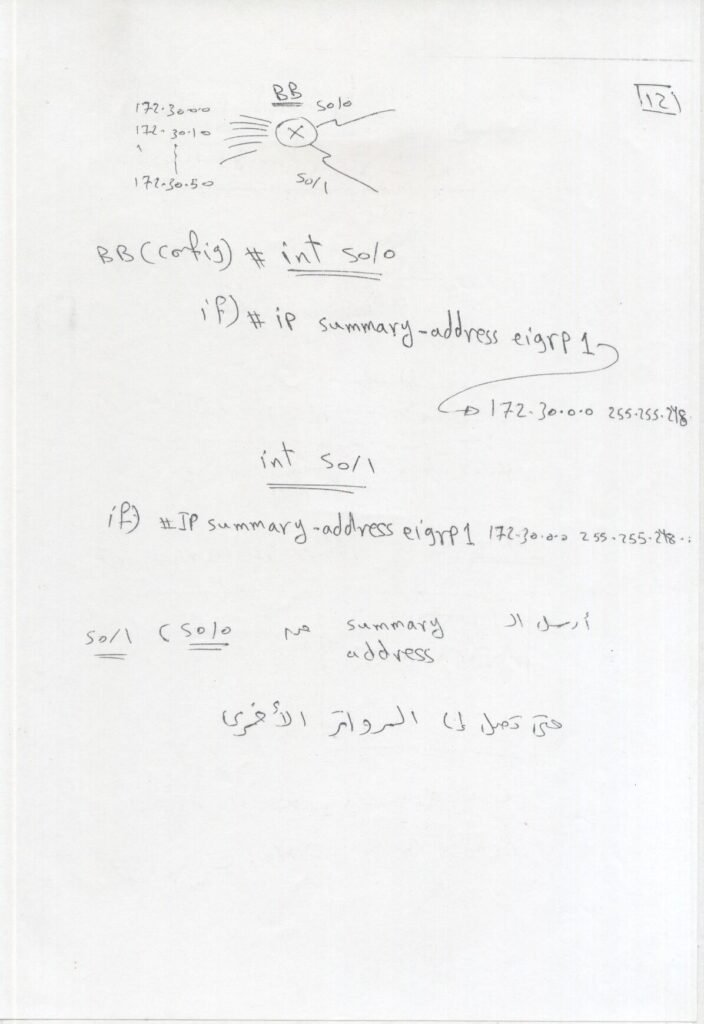 12
BB
So/o
172.30.0.0
172.30.1.0
172.30.5.0
So/1
BB(config) # int So/o
if) # ip summary-address eigrp 1
172.30.0.0 255.255.248
int So/1
if) # IP summary-address eigrp 1 172.30.0.0 255.255.248..
أرسل الـ summary address من So/o ، So/1
حتى تصل إلى الرواتر الأخرى